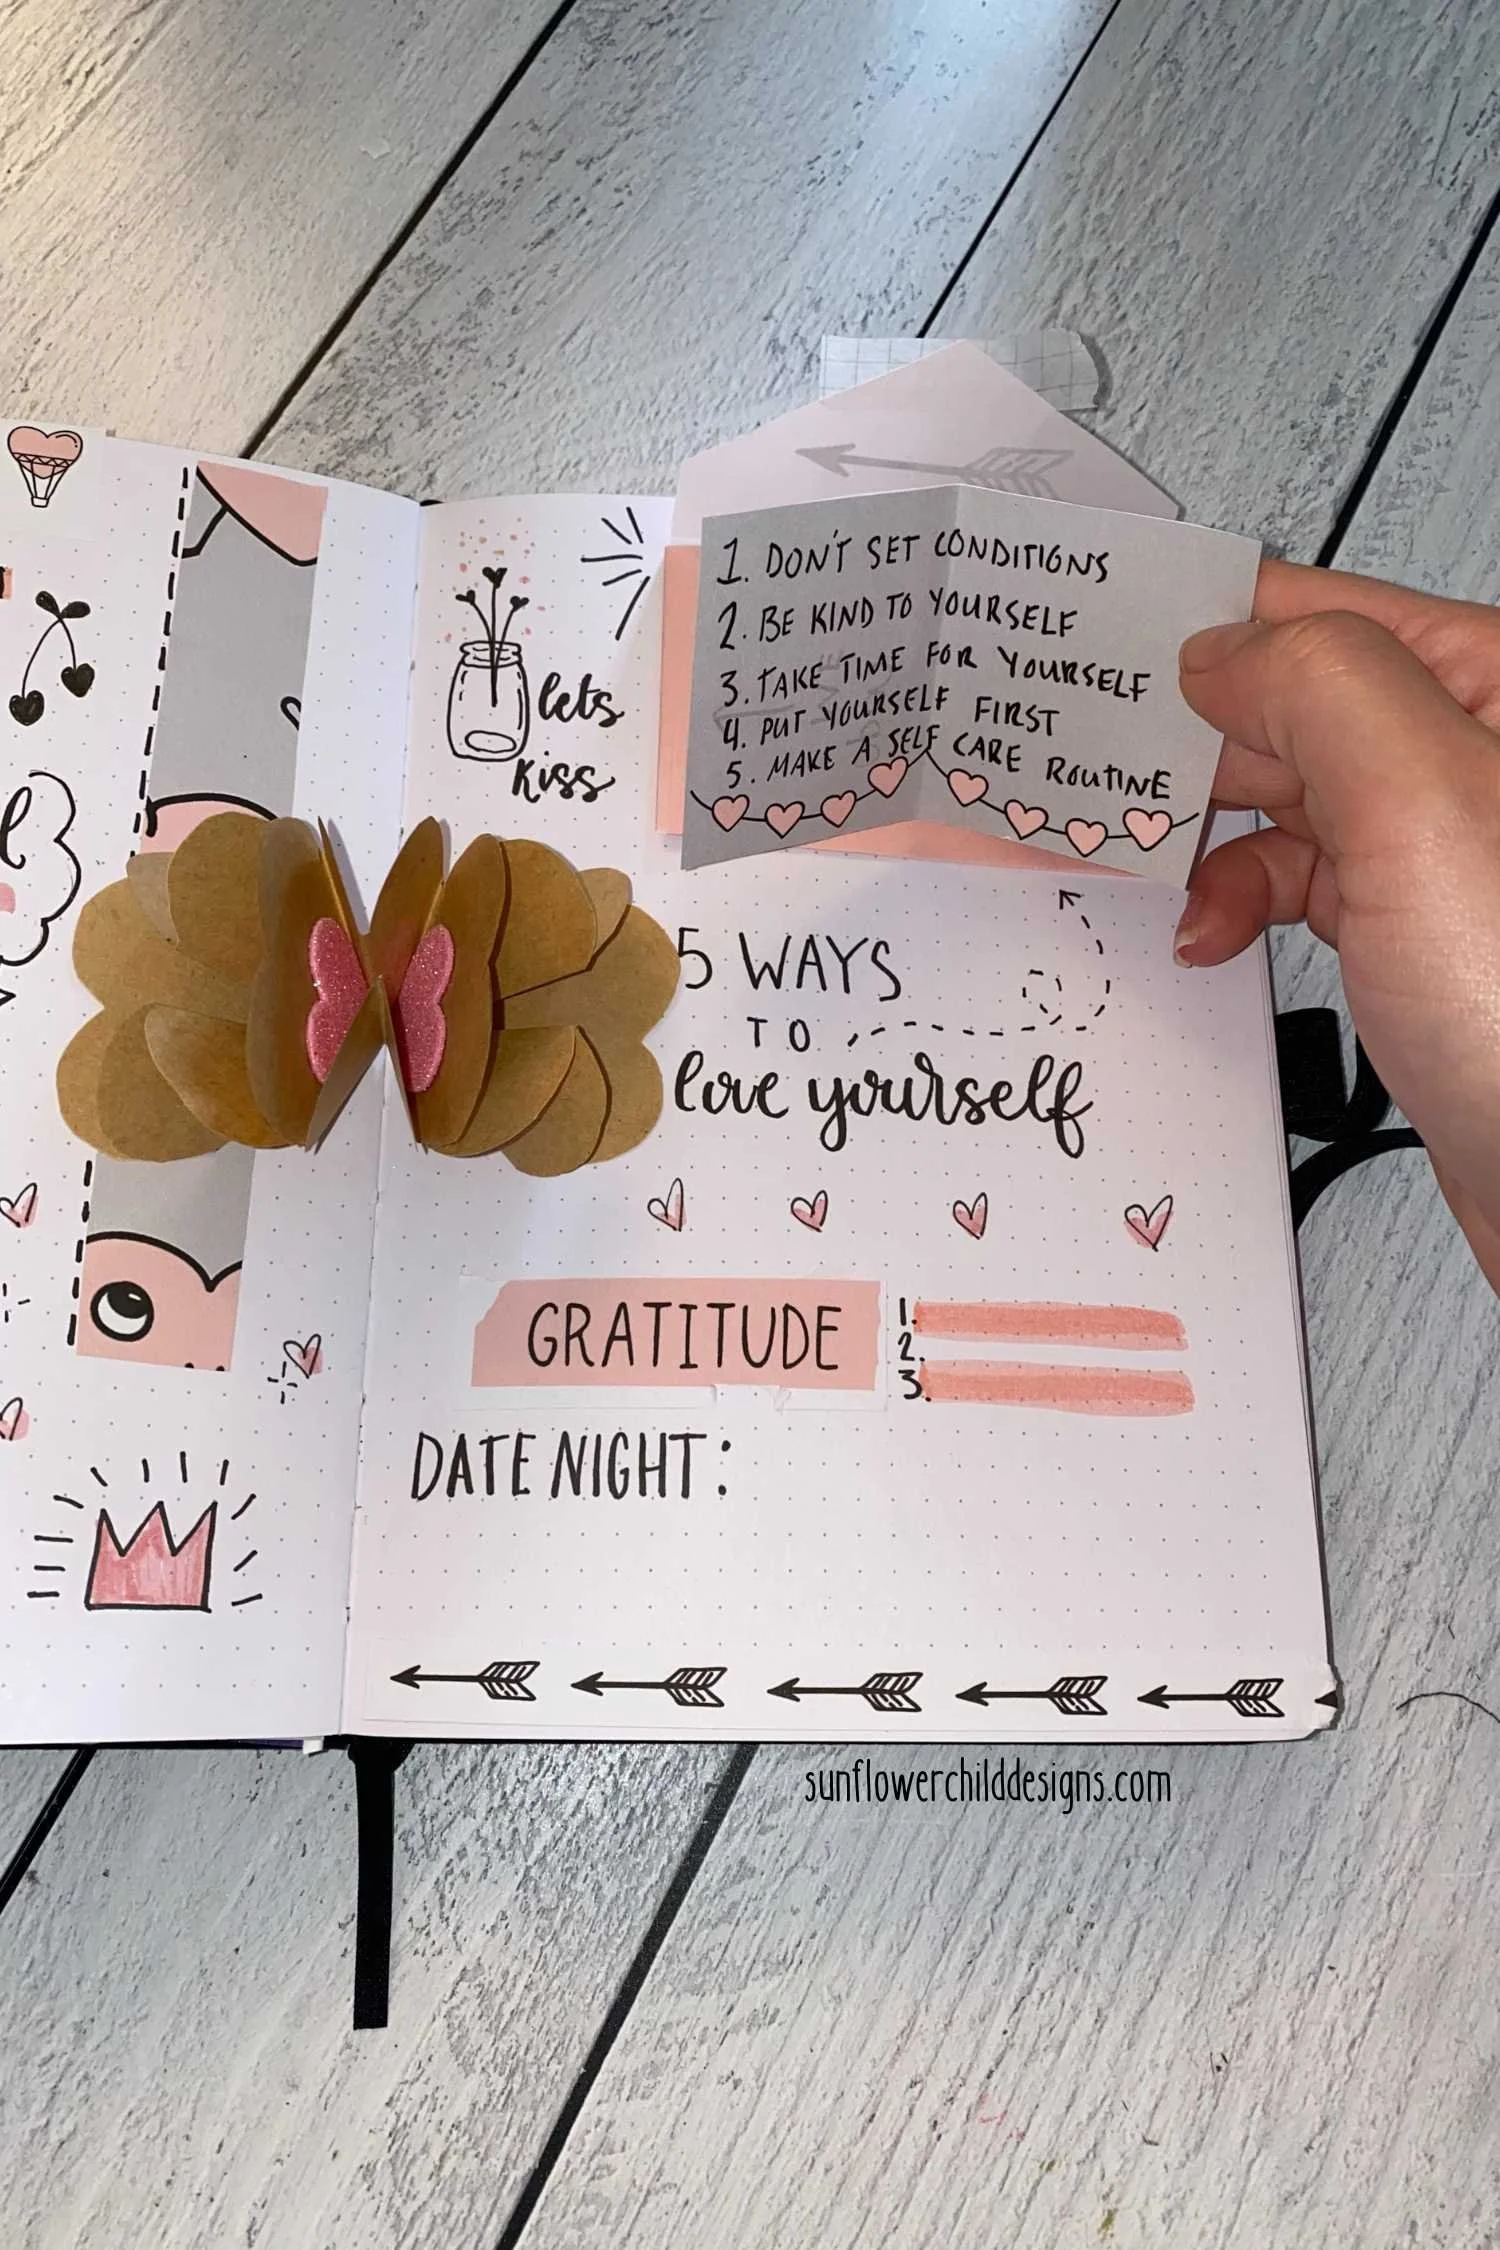 lets
kiss
1. DON'T SET CONDITIONS
2. BE KIND TO YOURSELF
3. TAKE TIME FOR YOURSELF
4. PUT YOURSELF FIRST
5. MAKE A SELF CARE ROUTINE
5 WAYS
TO
love yourself
GRATITUDE
1.
2.
3.
DATE NIGHT:
sunflowerchilddesigns.com